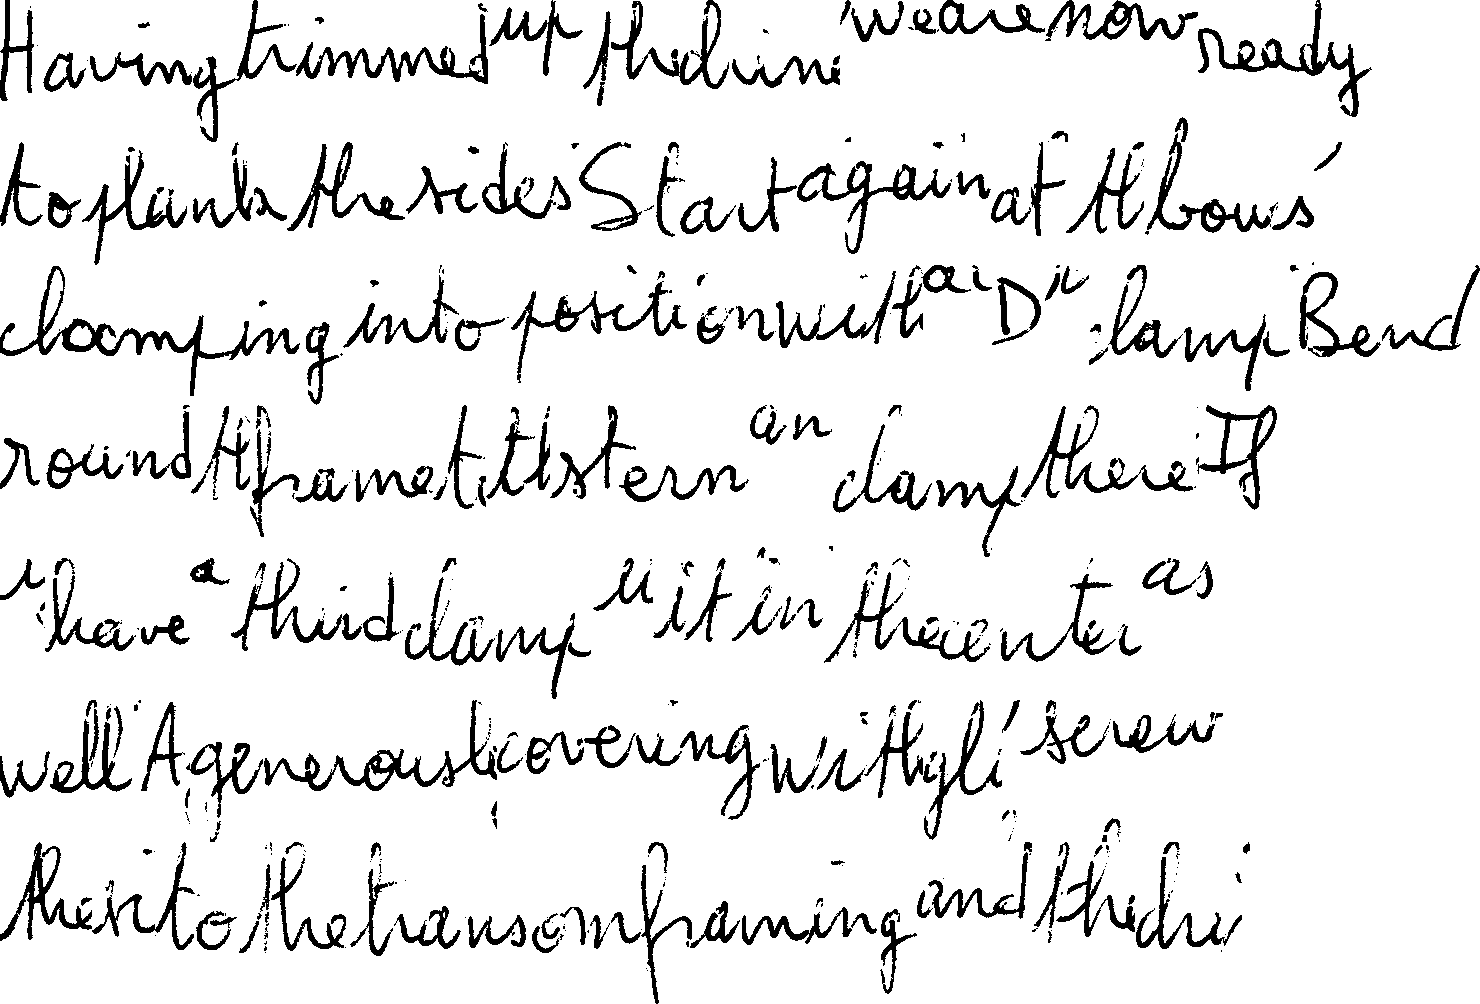 Having trimmed up the chine we are now ready
to plank the sides Start again at the bows
clamping into position with a "D" clamp Bend
round the frame to the stern an clamp there If
have a third clamp it in the center as
well A generous covering with glue screw
the to the transom framing and the